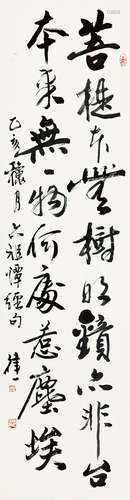 菩提本無樹明鏡亦非台
本来無一物何處惹塵埃
乙亥 月六祖壇經句